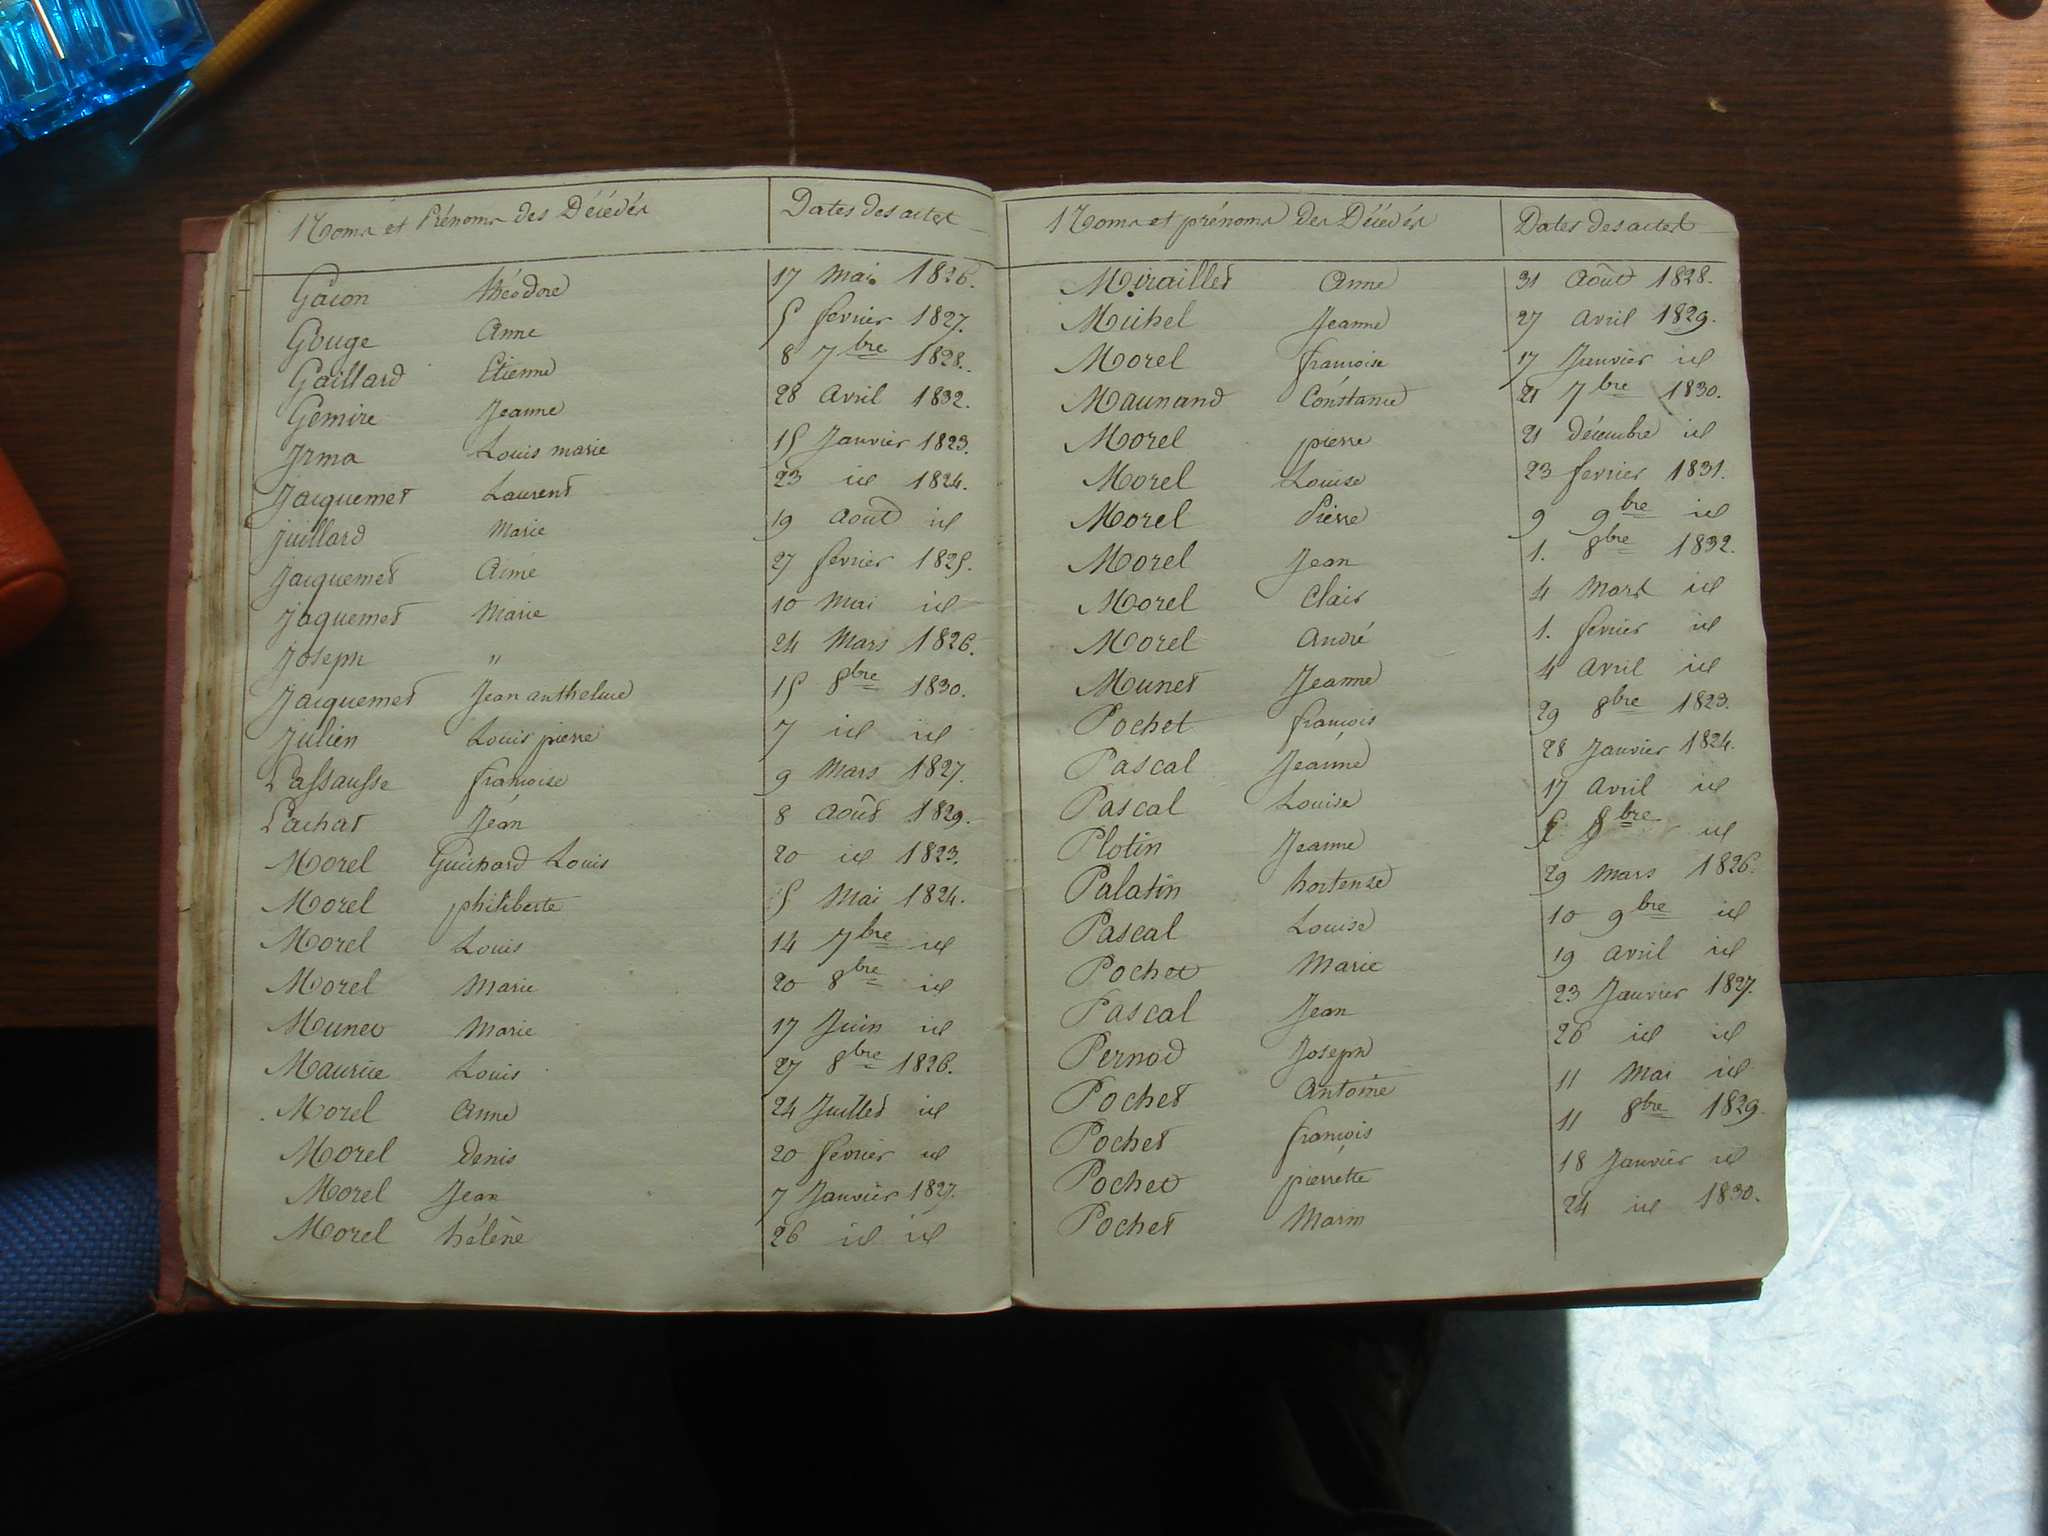 Noms et Prénoms des Décédés Dates des actes
Gacon théodore 17 Mai 1826.
Gouge Anne 5 fevrier 1827.
Gaillard Etienne 8 7bre 1828.
Gemire Jeanne 28 Avril 1832.
Irma Louis marie 15 Janvier 1823.
Jacquemet Laurent 23 id 1824.
juillard Marie 19 Aout id
Jacquemet Aimé 27 fevrier 1825.
Jaquemet Marie 10 Mai id
Joseph " 24 Mars 1826.
Jacquemet Jean anthelme 15 8bre 1830.
Julien Louis pierre 7 id id
Lassausse françoise 9 Mars 1827.
Lachat Jean 8 Août 1829.
Morel Guichard Louis 20 id 1823.
Morel philiberte 5 Mai 1824.
Morel Louis 14 7bre id
Morel Marie 20 8bre id
Munet Marie 17 Juin id
Maurice Louis 27 8bre 1826.
Morel Anne 24 Juillet id
Morel Denis 20 fevrier id
Morel Jean 7 Janvier 1827.
Morel hélène 26 id id
Noms et prénoms des Décédés Dates des actes
Miraillet Anne 31 Août 1828.
Michel Jeanne 27 Avril 1829.
Morel françoise 17 Janvier id
Maunand Constance 21 7bre 1830.
Morel pierre 21 décembre id
Morel Louise 23 fevrier 1831.
Morel Pierre 9 9bre id
Morel Jean 1. 8bre 1832.
Morel Clair 4 Mars id
Morel André 1. fevrier id
Munet Jeanne 4 Avril id
Pochet françois 29 8bre 1823.
Pascal Jeanne 28 Janvier 1824.
Pascal Louise 17 Avril id
Plotin Jeanne 8bre id
Palatin hortense 29 Mars 1826.
Pascal Louise 10 9bre id
Pochet Marie 19 Avril id
Pascal Jean 23 Janvier 1827.
Pernod Joseph 26 id id
Pochet Antoine 11 Mai id
Pochet françois 11 8bre 1829.
Pochet pierrette 18 Janvier id
Pochet Marin 24 id 1830.